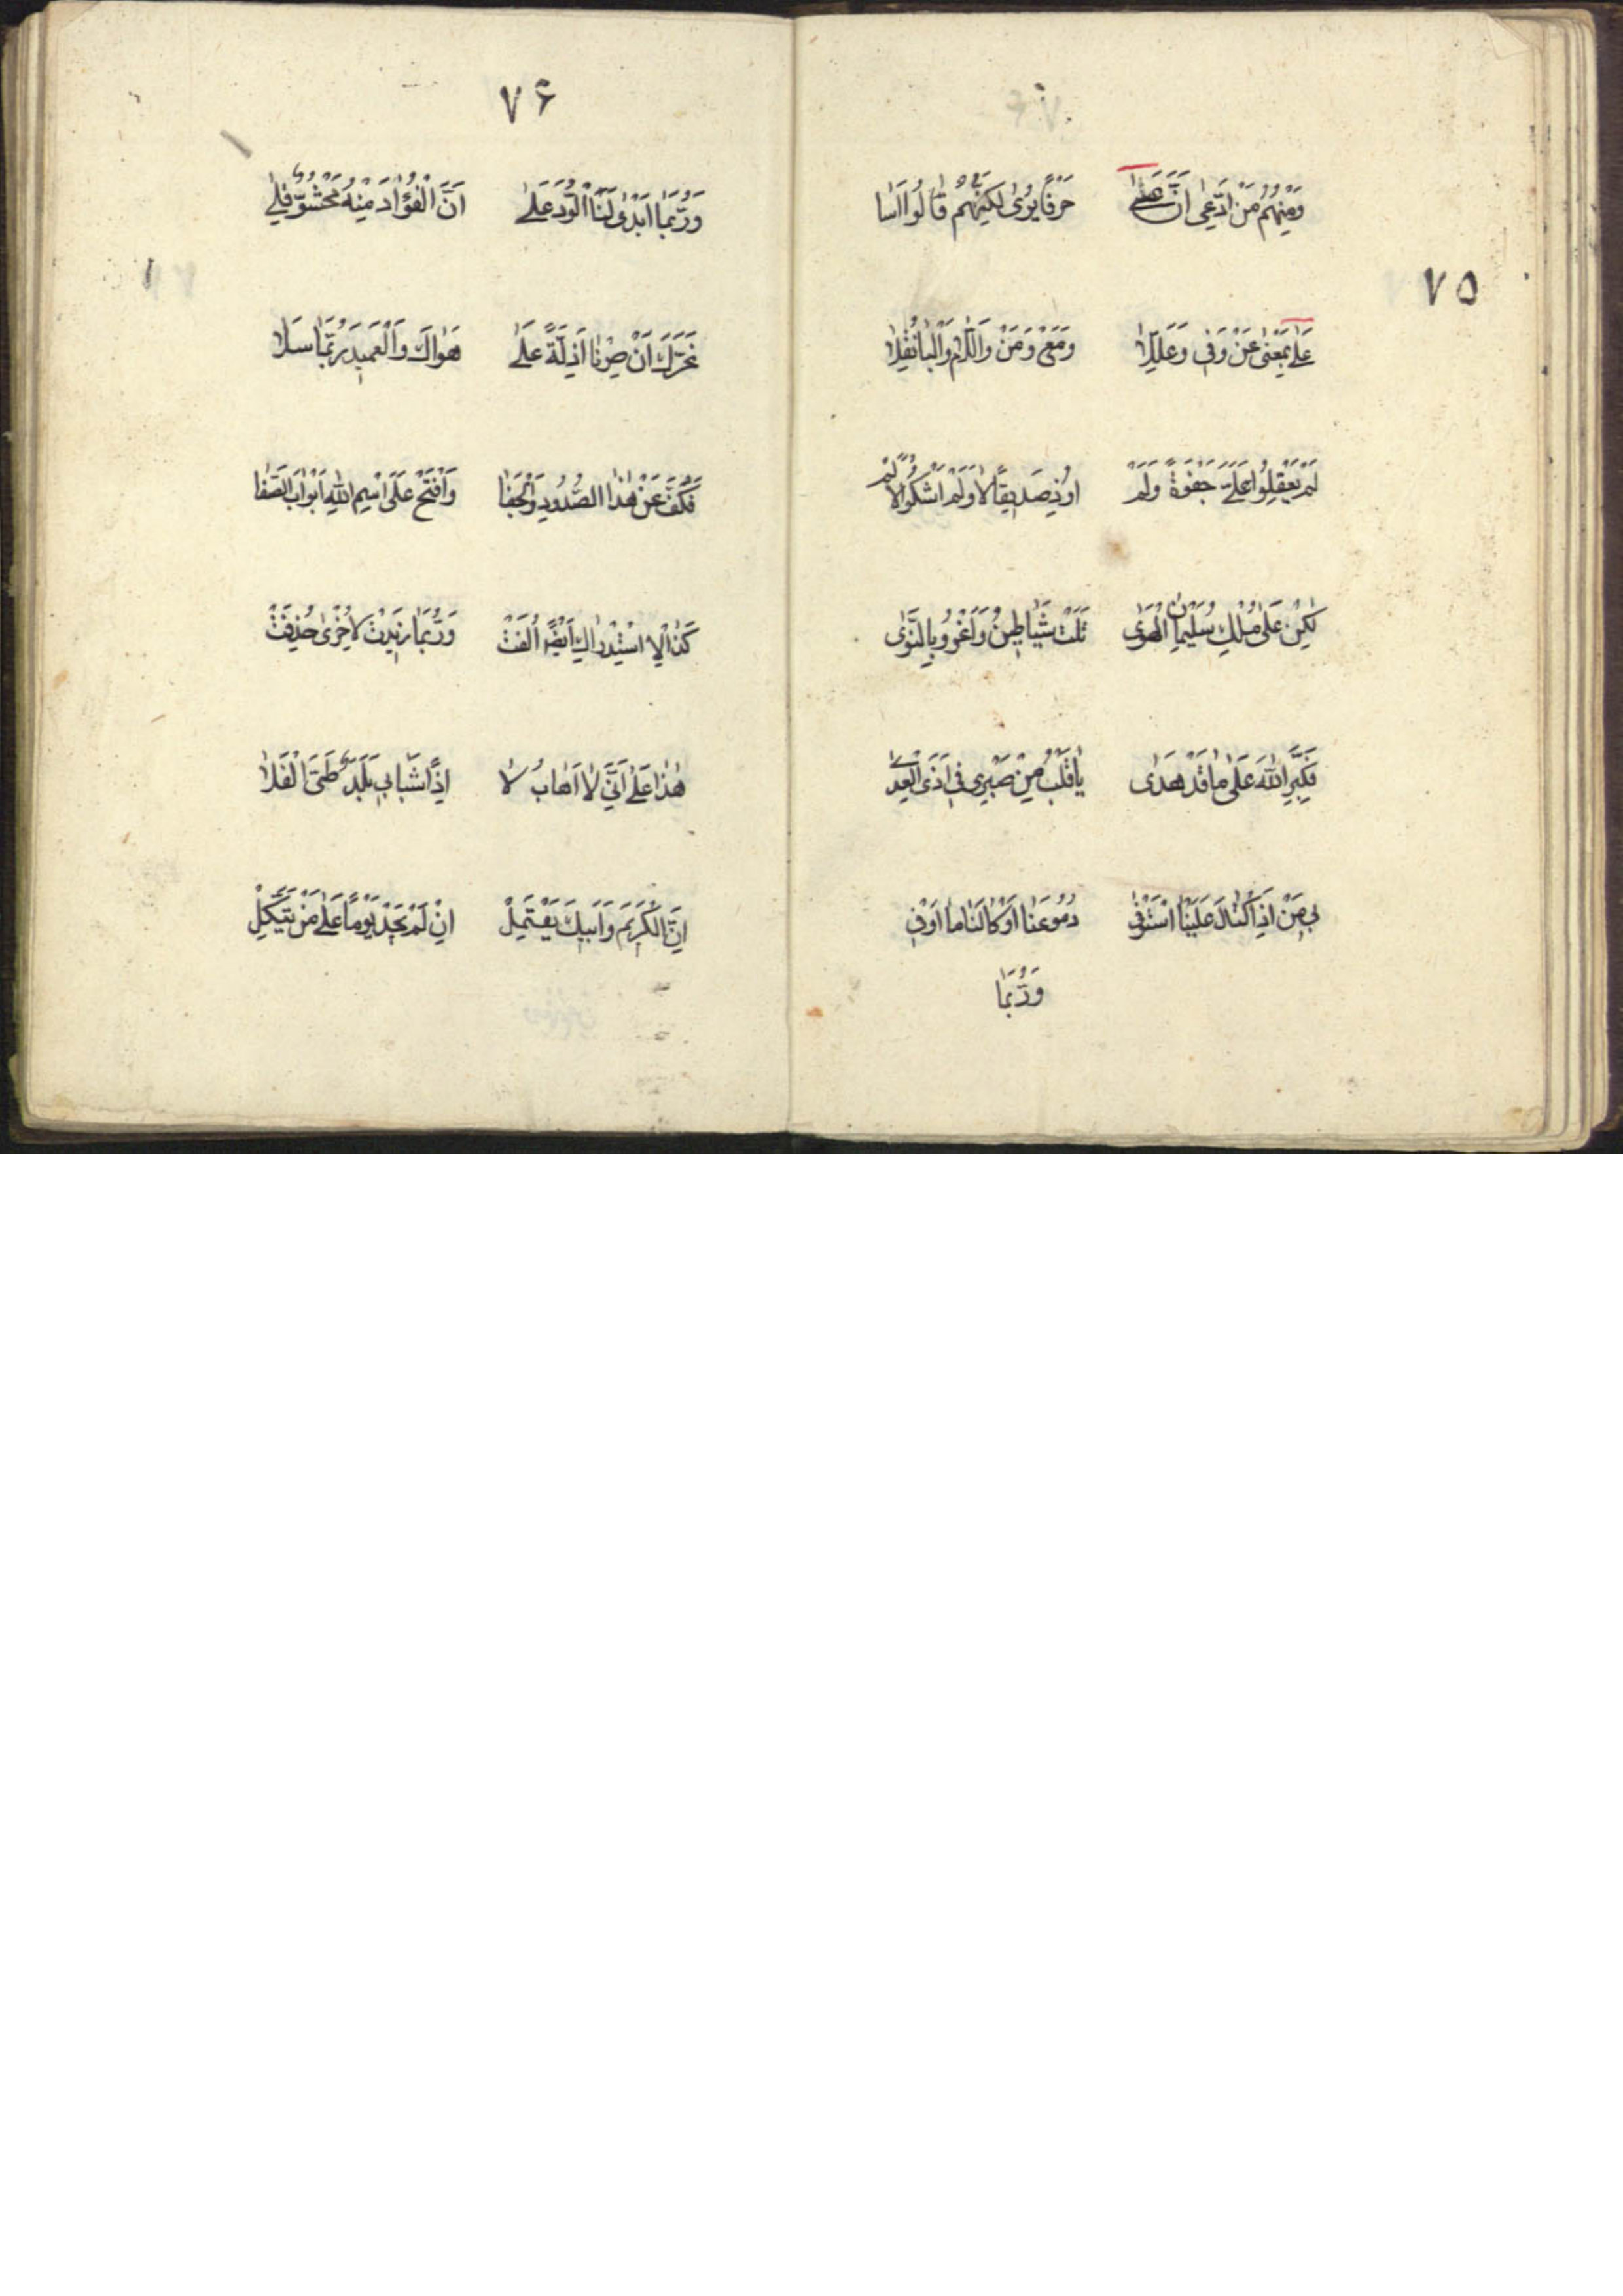 ٧٥
وَمِنْهُمُ مَنْ ادَّعىٰ اَنَّ عَلىٰ حَرْفًا يُرىٰ لكِنَّهُمْ قٰالُوا اَسٰا
عَلىٰ بِمَعْنىٰ عَنْ وَفِى وَعَلِّلاٰ وَمَعْ وَمِنْ وَاللّٰامُ وَالْبٰا نُقِلاٰ
لَمْ يَعْقِلُوا عَلَىَّ جَفْوَةً وَلَمْ اوُذِ صَديقًا لاٰ وَلَمْ اَشْكُو الاَلَمْ
لٰكِنْ عَلىٰ مُلْكِ سُلَيْمٰانِ الْهَوٰى تَلَتْ شَيٰاطِينُ وَاَغْرُوا بِالنَّوٰى
فَكَبِّرِ اللّٰهَ عَلىٰ مٰا قَدْ هَدٰى يٰا قَلْبُ مِنْ صَبْرِى فِى اَذَى الْعِدٰى
بِى مَنْ اِذَا كْتٰالَ عَلَيْنَا اسْتَوْفىٰ دُمُوعَنٰا اَوْ كٰالَنٰا مٰا اَوْفىٰ
وَرُبَّمٰا
٧۶
وَرُبَّمٰا اَبْدىٰ لَنَا الْوُدَّ عَلىٰ اَنَّ الْفُؤٰادَ مِنْهُ مَحْشُوٌّ قِلىٰ
نَحْرَكَ اَنْ صِرْنٰا اَذِلَّةً عَلىٰ هَوٰاكَ وَالْعَمِيدُ رُبَّمٰا سَلاٰ
فَكُفَّ عَنْ هٰذَا الصُّدُودِ وَالْجَفٰا وَافْتَحْ عَلَى اسْمِ اللّٰهِ اَبْوٰابَ الصَّفٰا
كَذٰا لاِسْتِدْرٰاكٍ اَيْضًا اُلِفَتْ وَرُبَّمٰا زِيدَتْ لاُخْرىٰ حُذِفَتْ
هٰذٰا عَلىٰ اَنِّى لاٰ اَهٰابُ لاٰ اِذًا شَبٰابِى طَمَى الْفَلاٰ
اِنَّ الْكَرِيمَ وَاَبِيكَ يَعْتَمِلْ اِنْ لَمْ يَجِدْ يَوْمًا عَلىٰ مَنْ يَتَّكِلْ